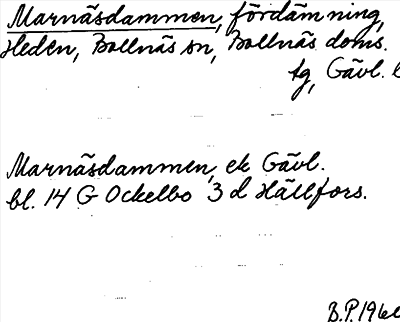 Marnäsdammen, fördämning,
Heden, Bollnäs sn, Bollnäs doms.
tg, Gävl. l
Marnäsdammen, ek Gävl.
bl. 14 G Ockelbo 3 d Hällfors.
B.P. 196